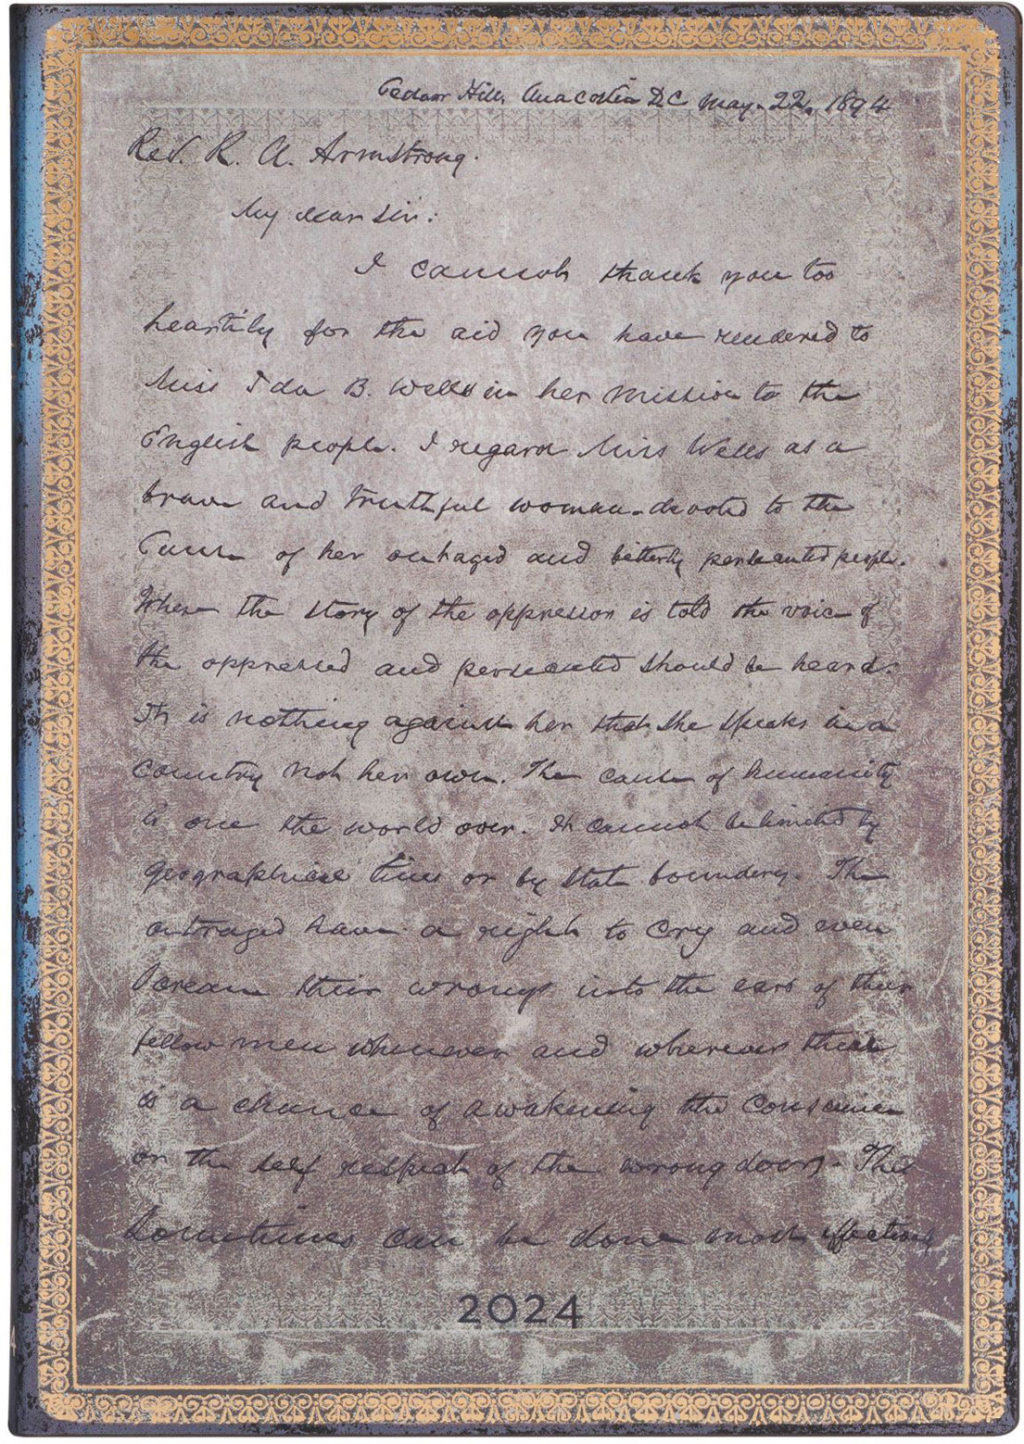 Cedar Hill, Anacostia D.C. May. 22, 1894
Rev. R. A. Armstrong.
My dear Sir:
I cannot thank you too
heartily for the aid you have rendered to
Miss Ida B. Wells in her mission to the
English people. I regard Miss Wells as a
brave and truthful woman devoted to the
Cause of her outraged and bitterly persecuted people.
Where the story of the oppressor is told the voice of
the oppressed and persecuted should be heard.
It is nothing against her that she speaks in a
country not her own. The cause of humanity
is one the world over. It cannot be limited by
geographical lines or by state boundery. The
outraged have a right to cry and even
scream their wrongs into the ears of their
fellow men whenever and wherever there
is a chance of awakening the conscience
or the self respect of the wrong doers. This
sometimes can be done most
2024